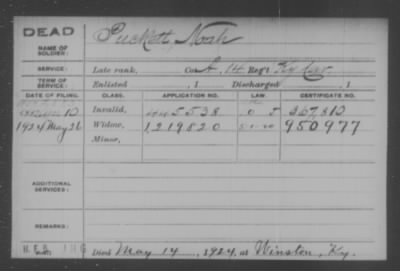 DEAD
NAME OF SOLDIER:
Puckett, Noah
SERVICE:
Late rank, Co. A, 14 Reg't Ky. Cav.
TERM OF SERVICE:
Enlisted , 1 Discharged , 1
DATE OF FILING. CLASS. APPLICATION NO. LAW. CERTIFICATE NO.
Invalid, 445538 367,810
1924 May 26 Widow, 1219820 5-1-20 950977
Minor,
ADDITIONAL SERVICES:
REMARKS:
Died May 14, 1924, at Winston, Ky.